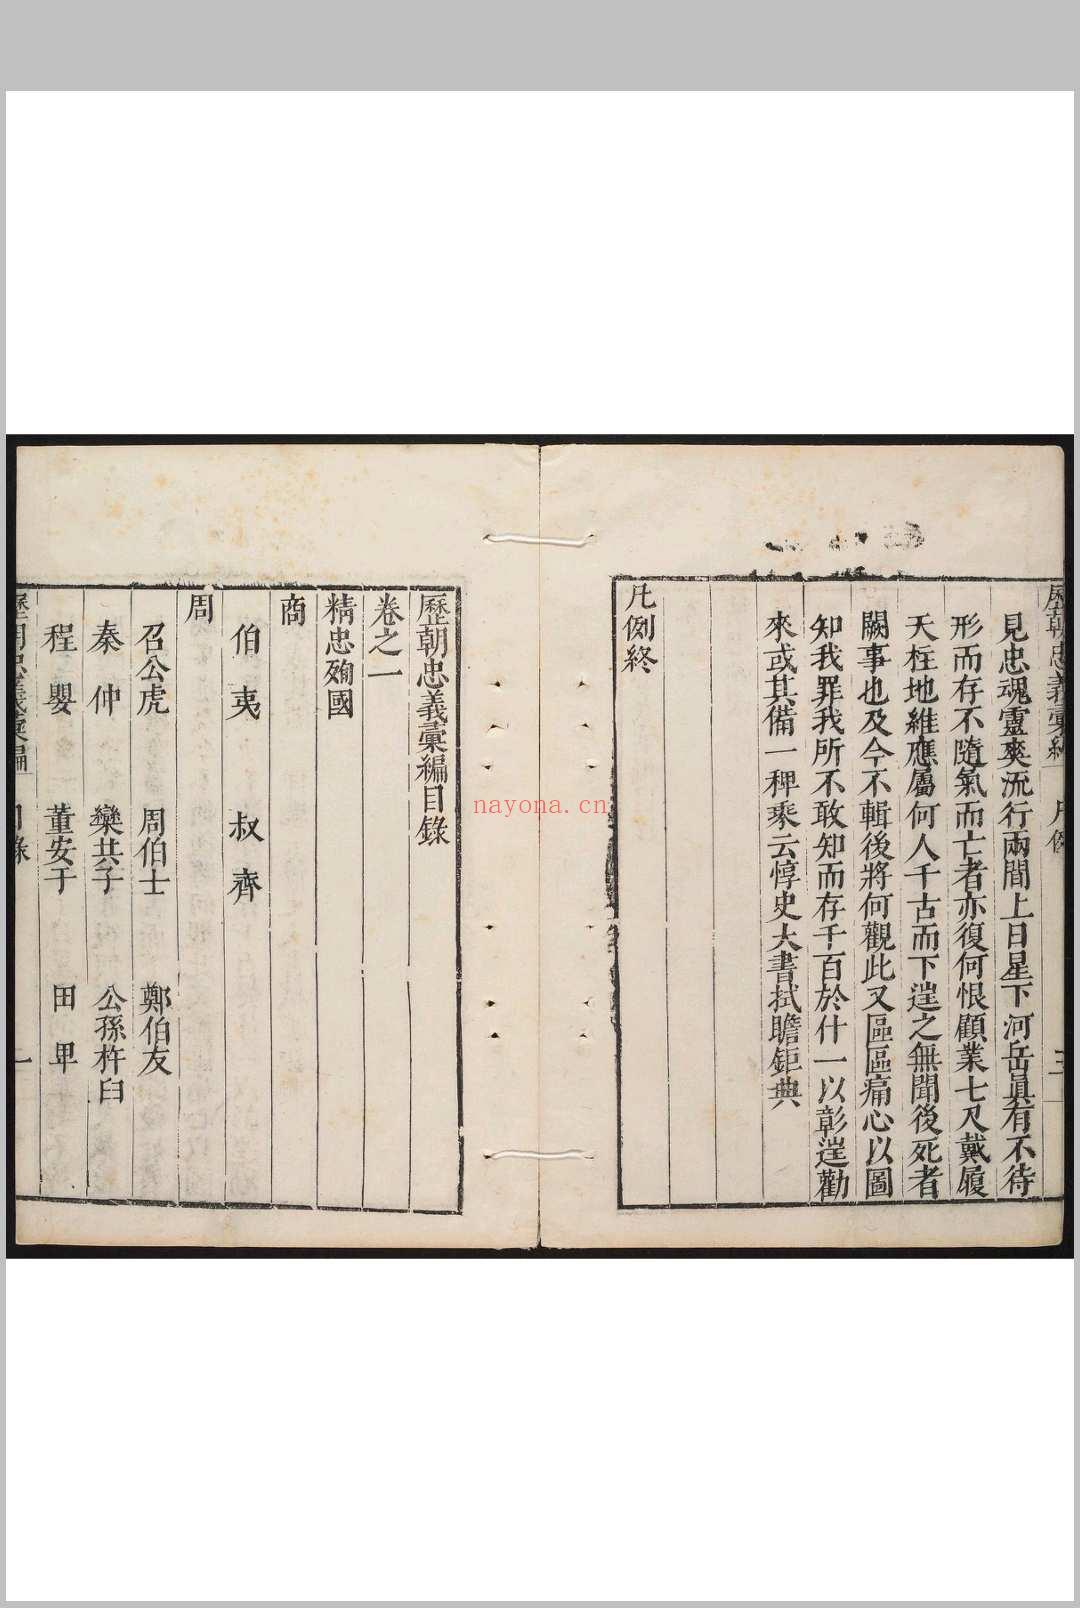 見忠魂靈爽流行兩間上日星下河岳眞有不待
形而存不隨氣而亡者亦復何恨顧業七尺戴履
天柱地維應屬何人千古而下遑之無聞後死者
闕事也及今不輯後將何觀此又區區痛心以圖
知我罪我所不敢知而存千百於什一以彰遑勸
來或其備一稗乘云惇史大書拭瞻鉅典
凡例終
歷朝忠義彙編目錄
卷之一
精忠殉國
商
伯夷 叔齊
周
召公虎 周伯士 鄭伯友
秦仲 欒共子 公孫杵臼
程嬰 董安于 田卑
歷朝忠義彙編 目錄 一
nayona.cn